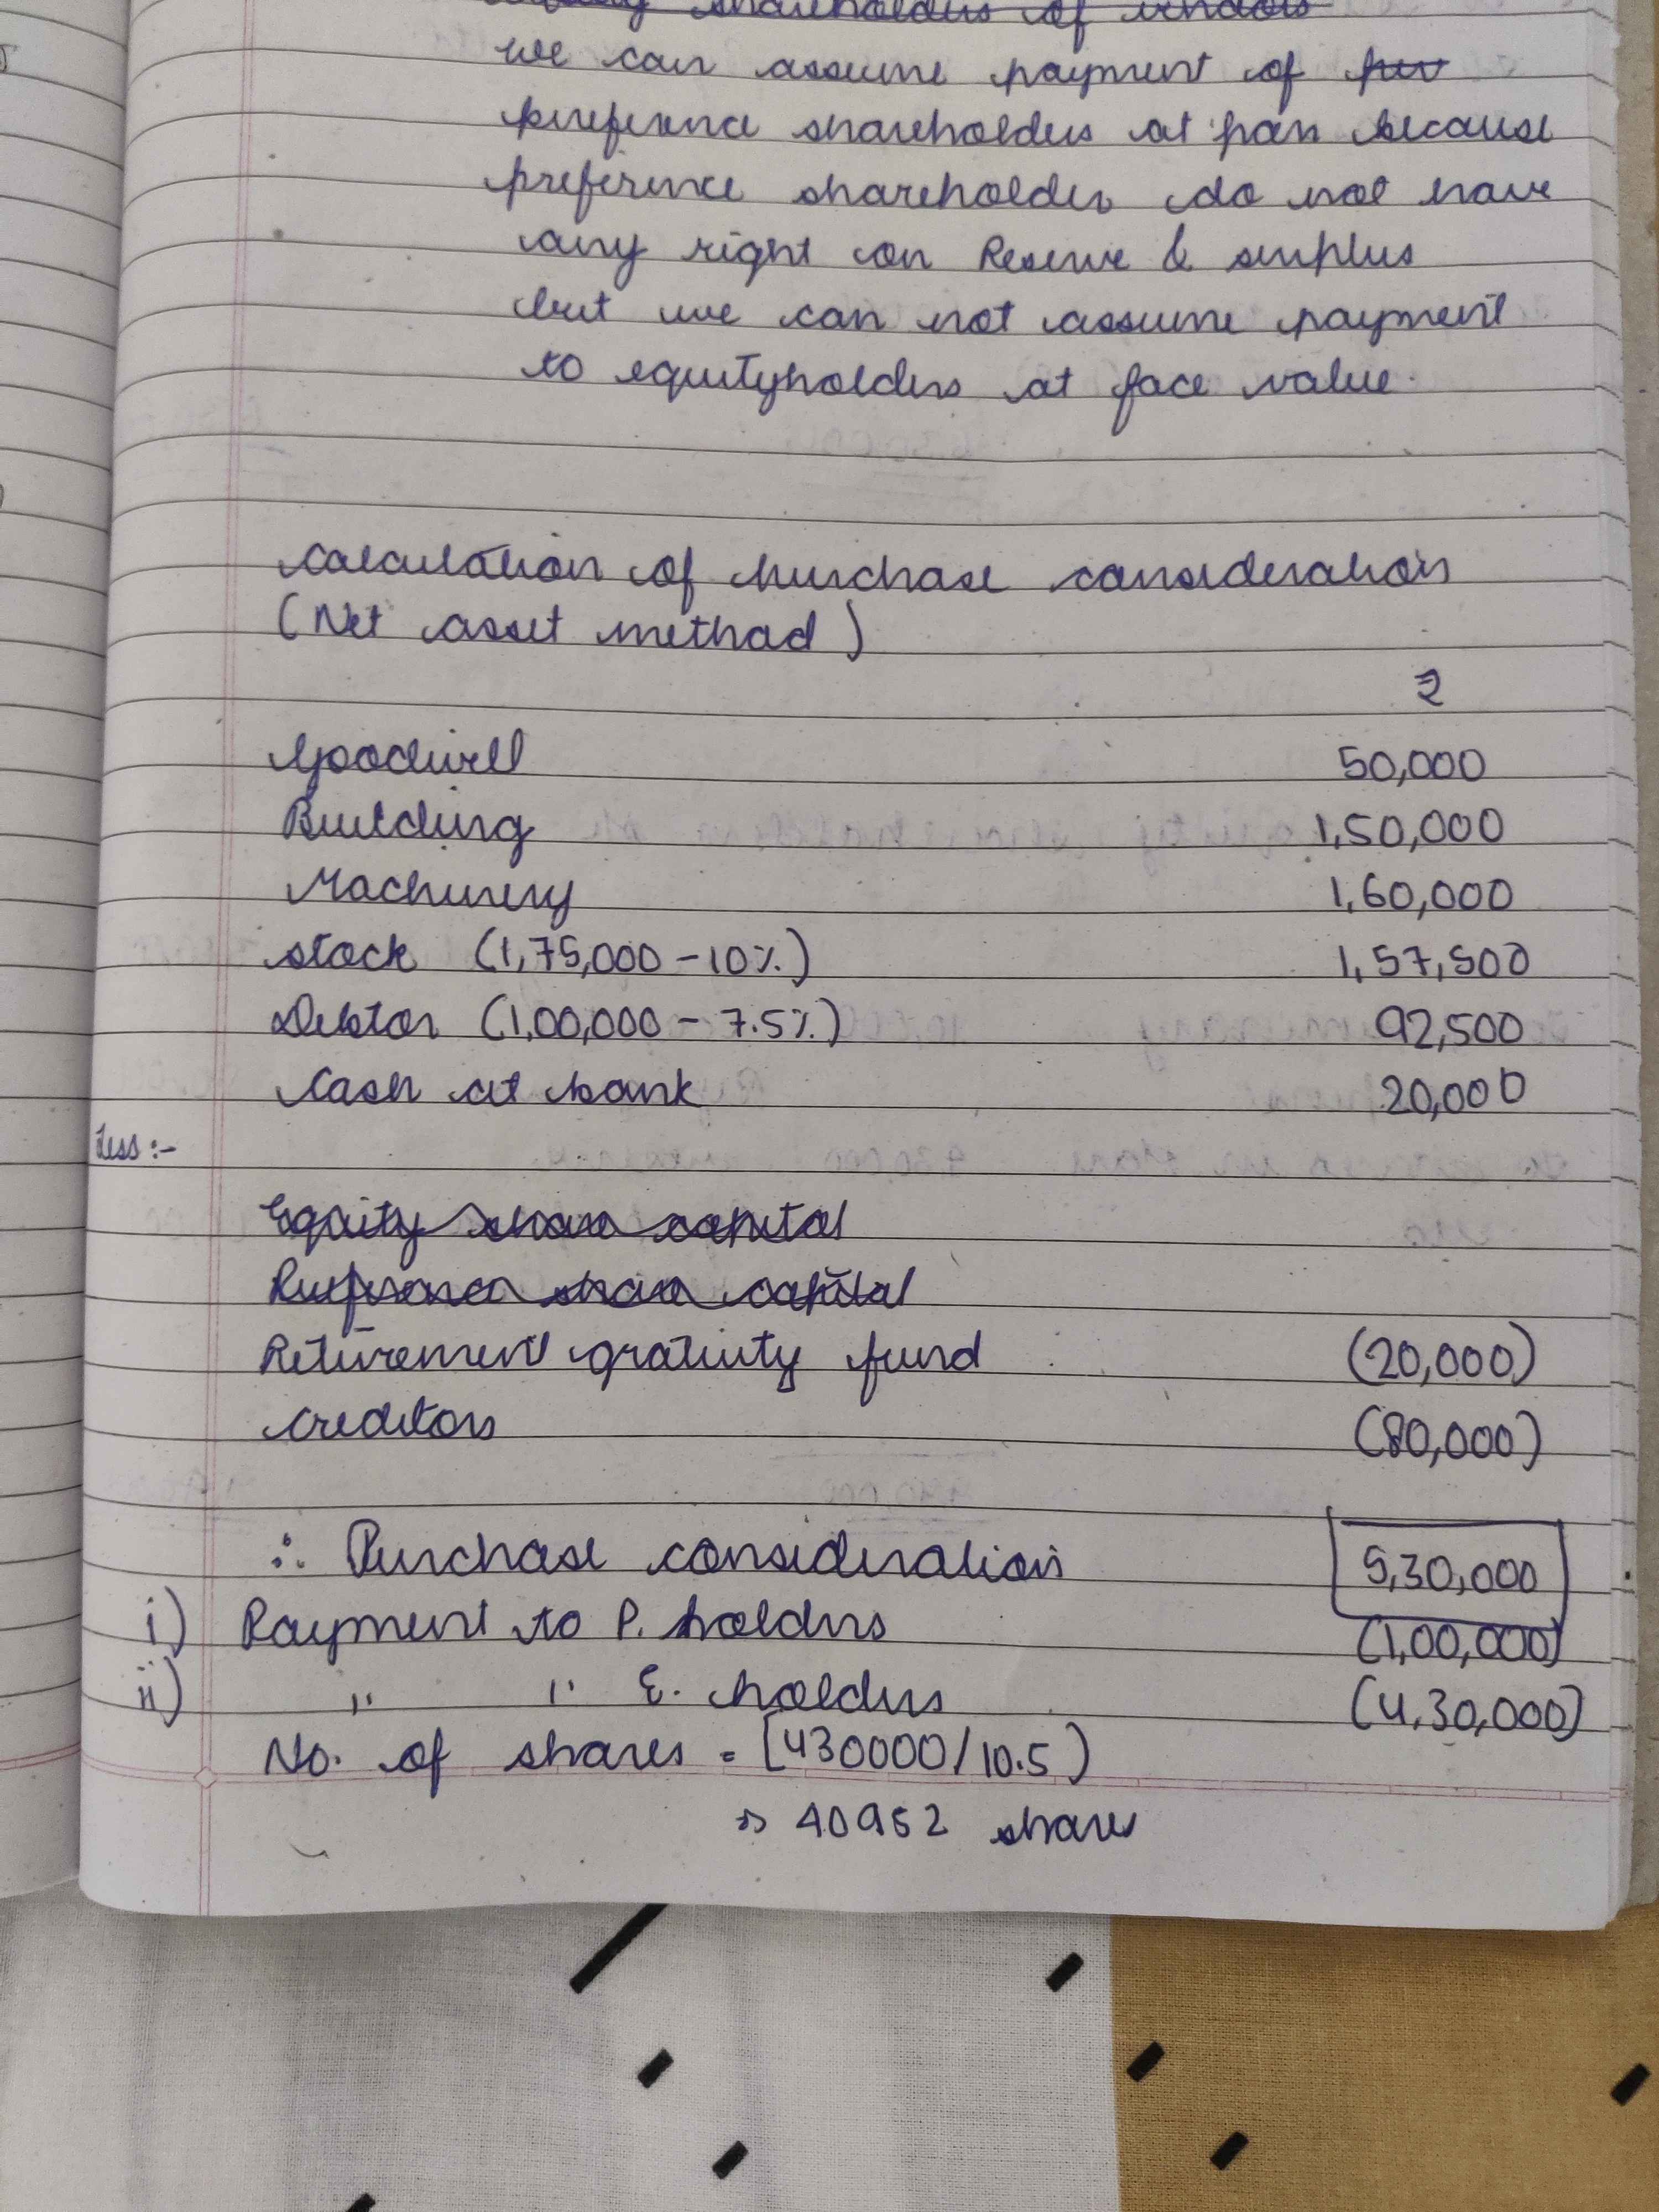 shareholders of vendors
we can assume payment of pre
preference shareholders at par because
preference shareholders do not have
any right on Reserve & surplus
but we can not assume payment
to equityholders at face value.
Calculation of purchase consideration
(Net asset method)
₹
Goodwill 50,000
Building 1,50,000
Machinery 1,60,000
Stock (1,75,000 - 10%) 1,57,500
Debtor (1,00,000 - 7.5%) 92,500
Cash at bank 20,000
Less :-
Equity share capital
Preference share capital
Retirement gratuity fund (20,000)
Creditors (80,000)
∴ Purchase consideration 5,30,000
i) Payment to P. holders (1,00,000)
ii) " " E. holders (4,30,000)
No. of shares = [430000/10.5)
⇒ 40952 shares